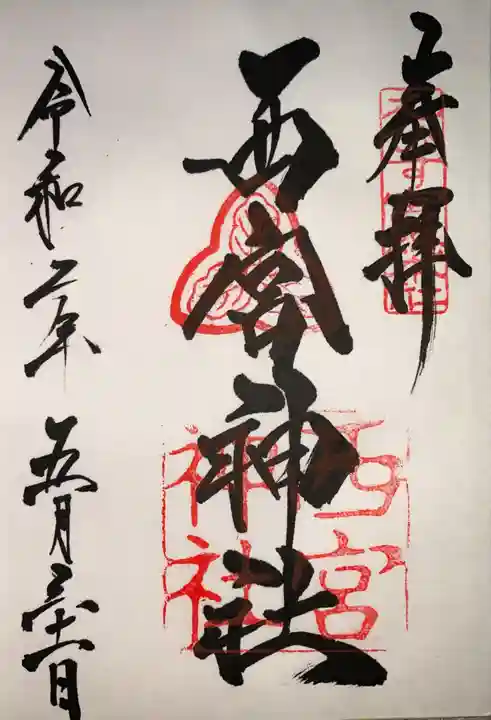 奉拝
西宮神社
西宮神社
令和二年 五月三十一日